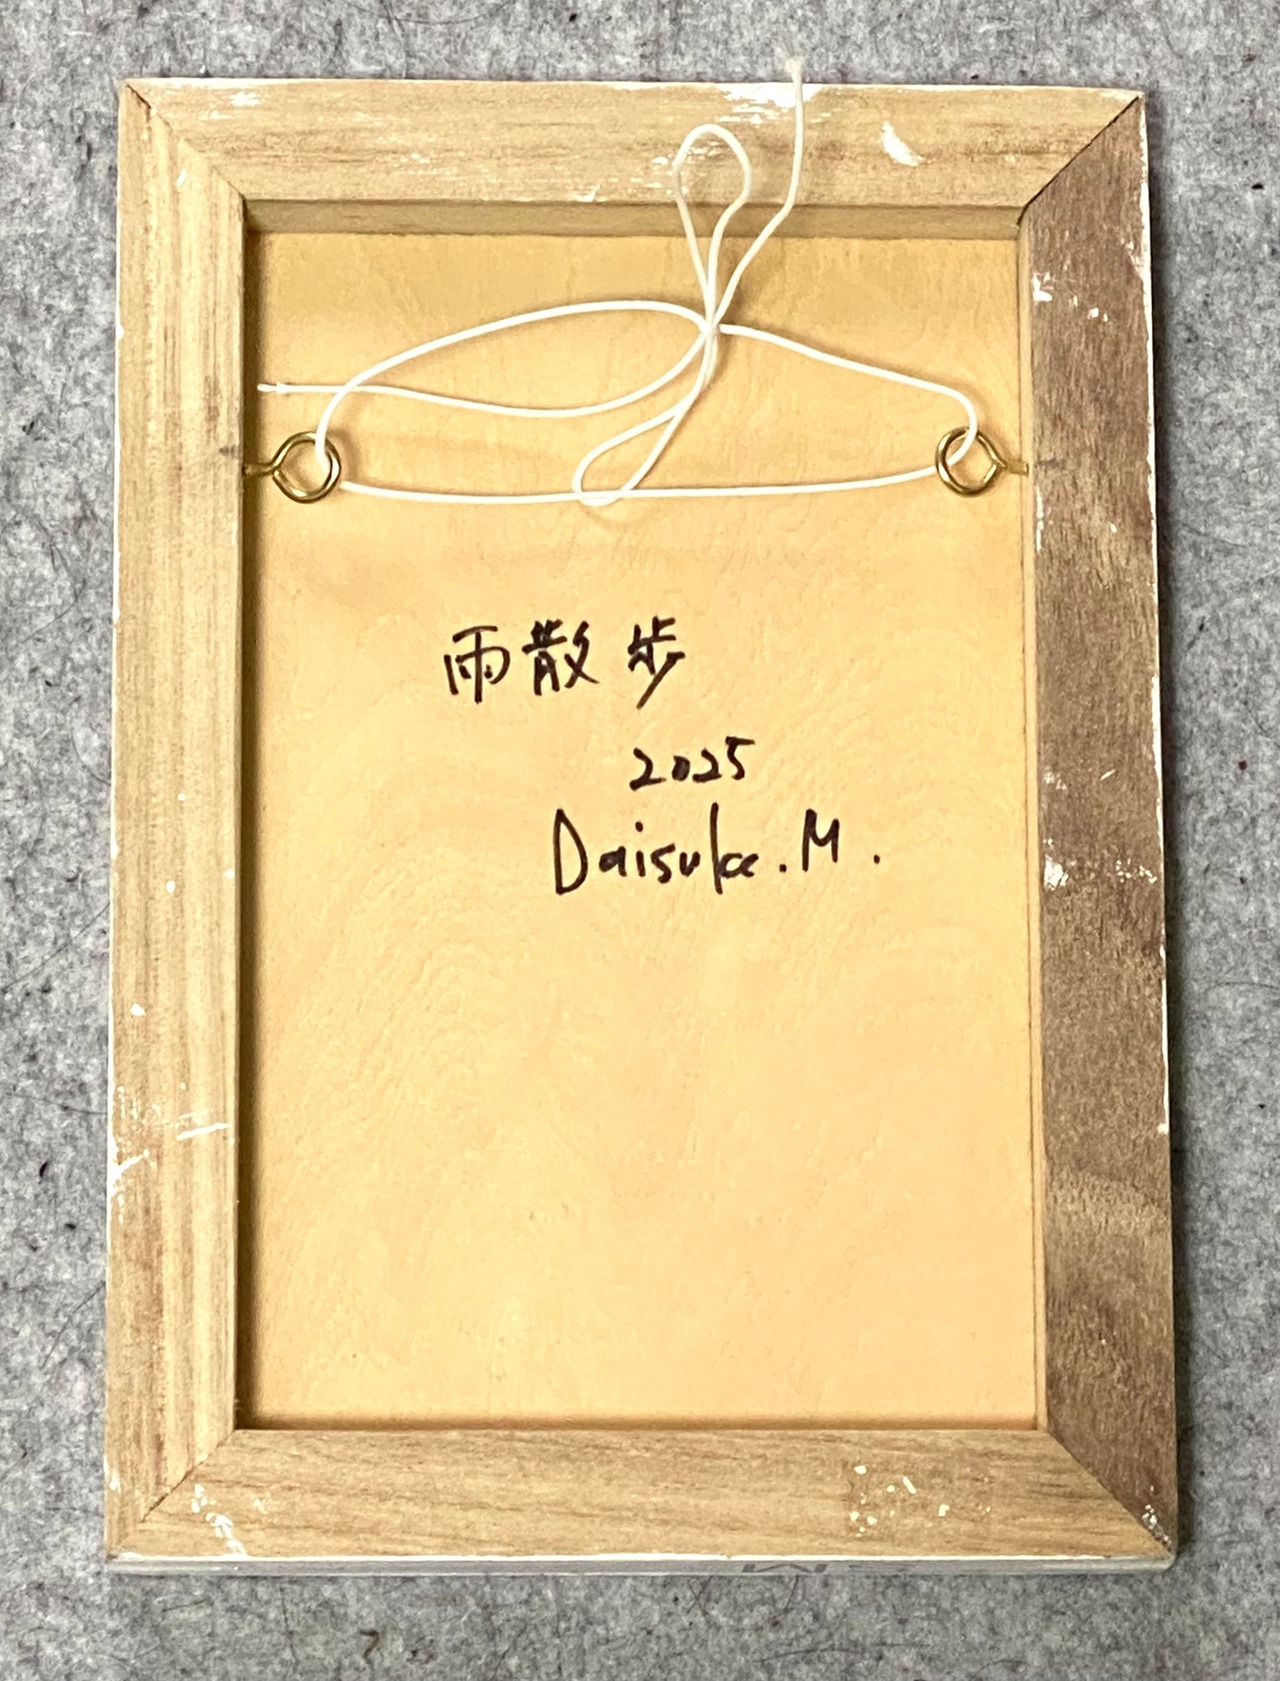 雨散歩
2025
Daisuke.M.